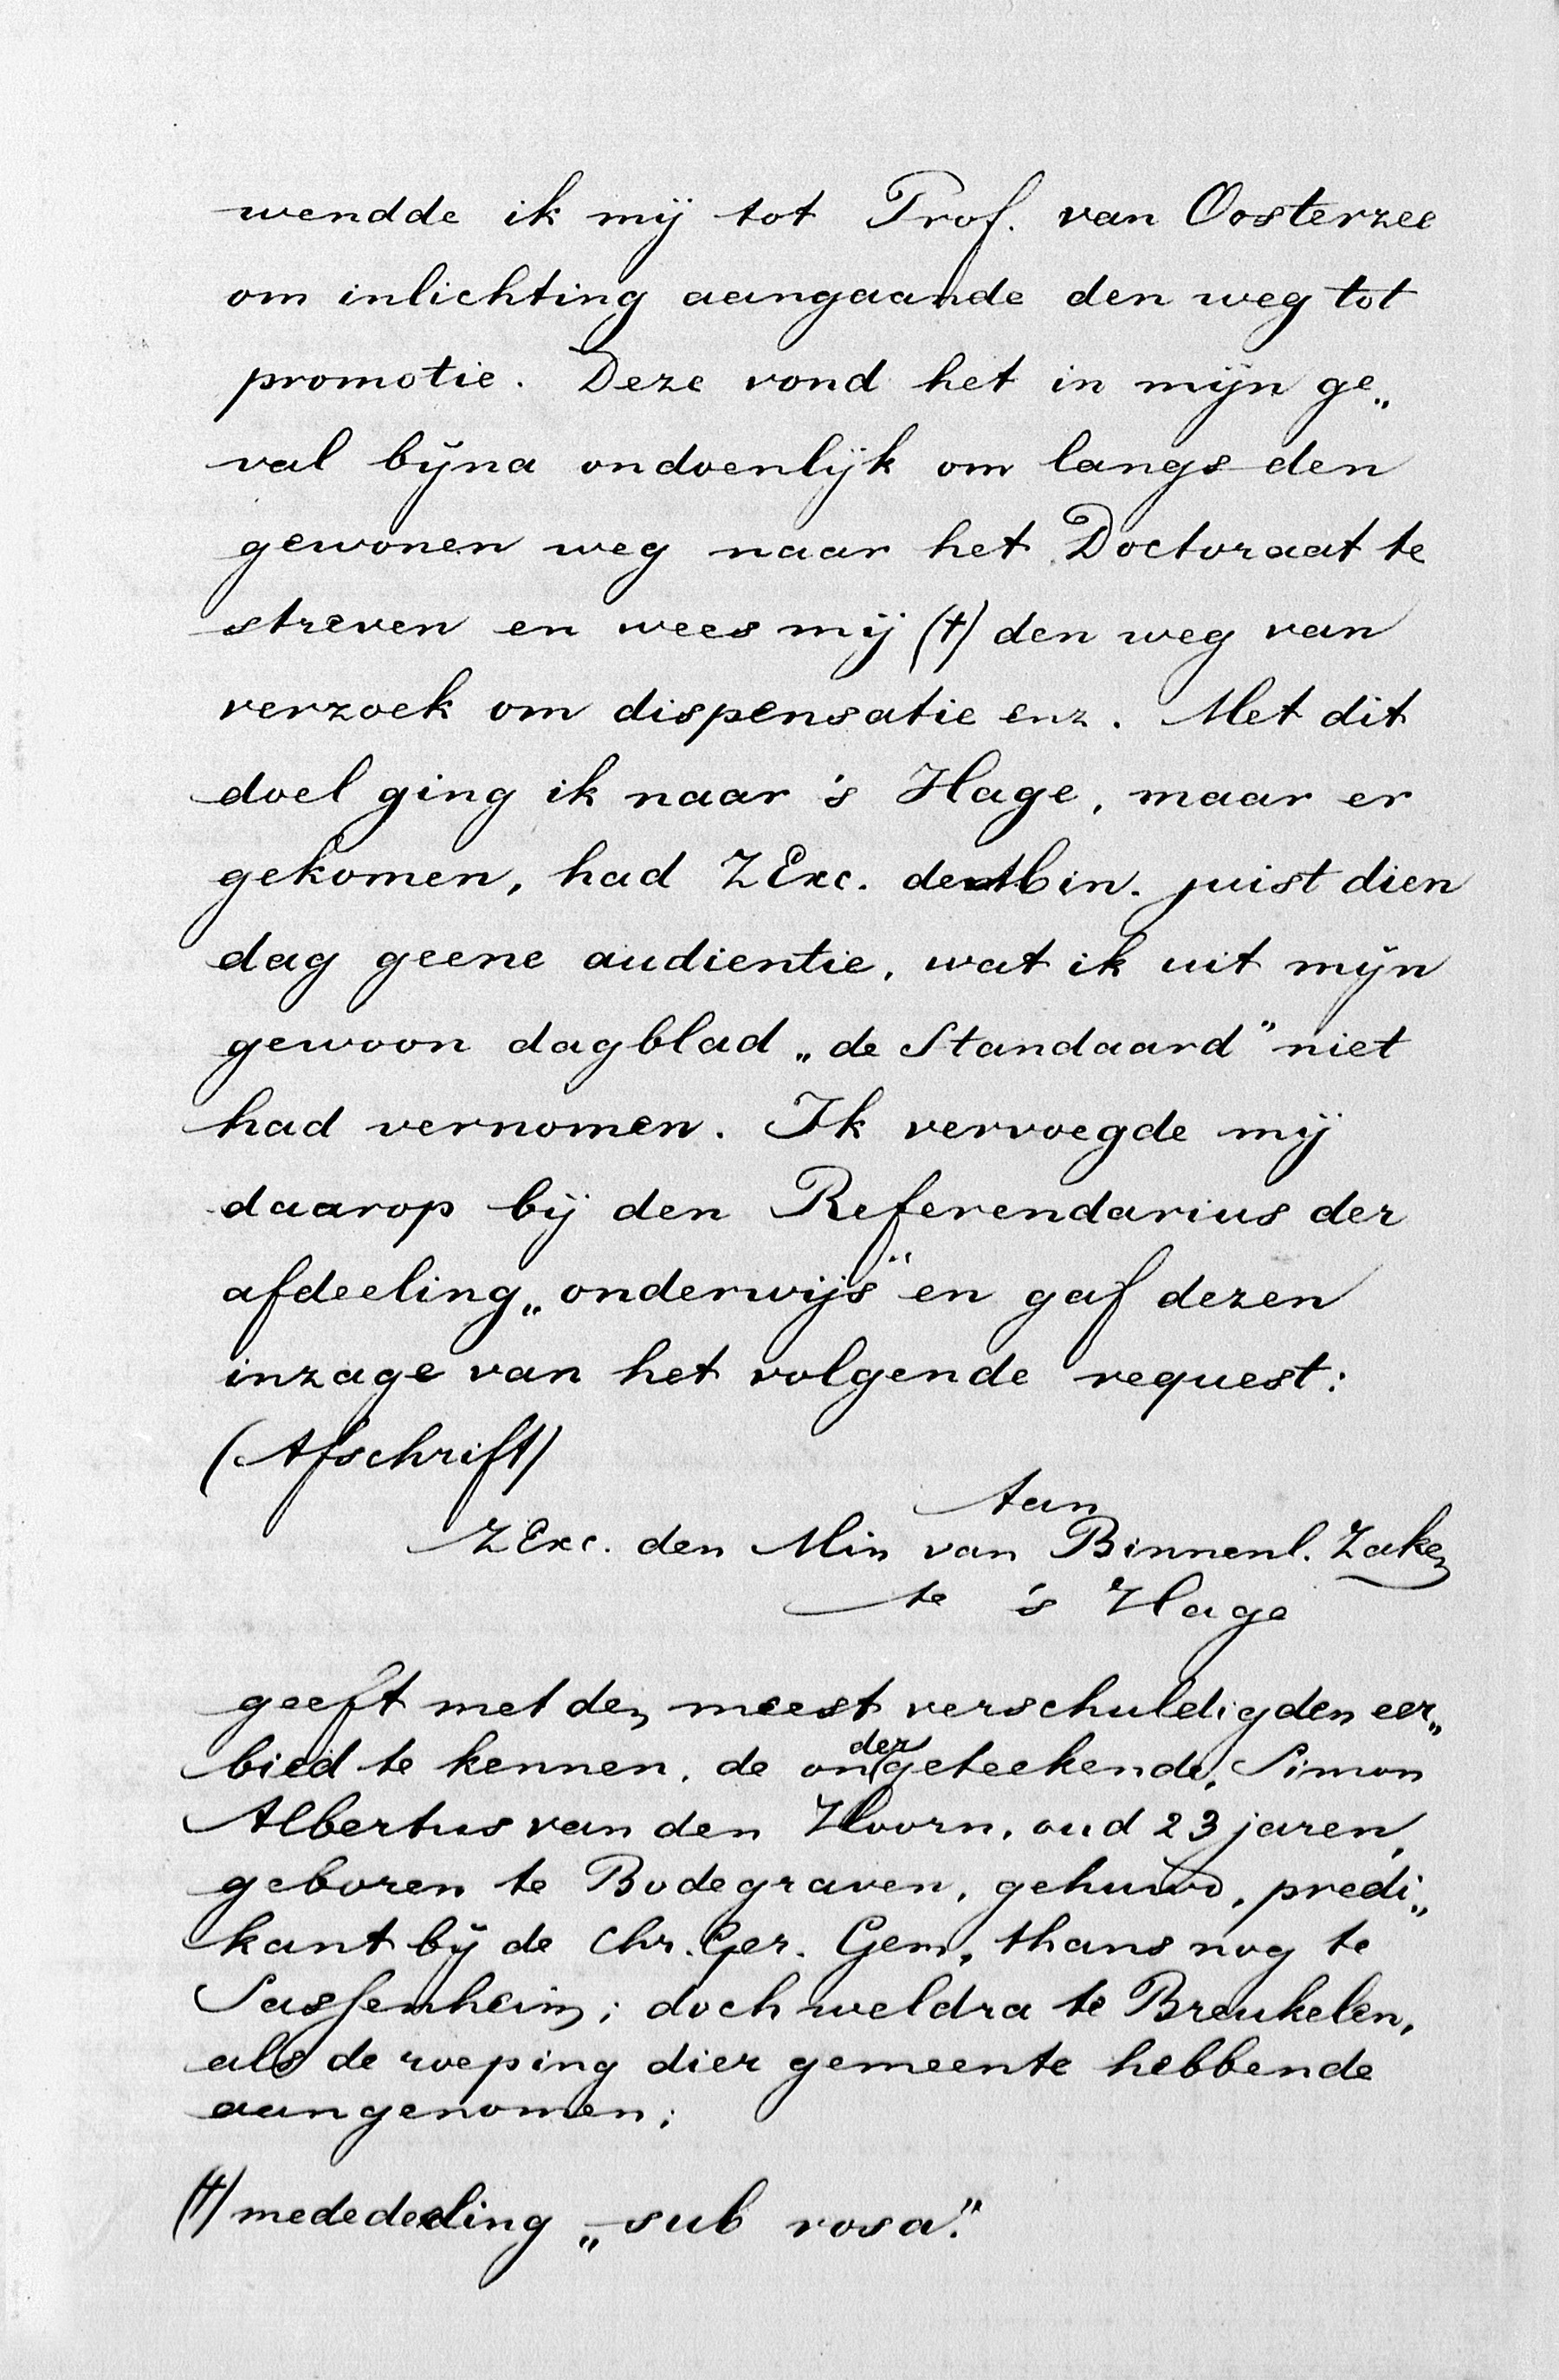 wendde ik mij tot Prof. van Oosterzee
om inlichting aangaande den weg tot
promotie. Deze vond het in mijn ge„
val bijna ondoenlijk om langs den
gewonen weg naar het Doctoraat te
streven en wees mij (†) den weg van
verzoek om dispensatie enz. Met dit
doel ging ik naar 's Hage, maar er
gekomen, had ZExc. de Min. juist dien
dag geene audientie, wat ik uit mijn
gewoon dagblad „de Standaard" niet
had vernomen. Ik vervoegde mij
daarop bij den Referendarius der
afdeeling „onderwijs" en gaf dezen
inzage van het volgende request:
(Afschrift)
Aan
ZExc. den Min van Binnenl. Zaken
te 's Hage
geeft met den meest verschuldigden eer„
bied te kennen, de ondergeteekende, Simon
Albertus van den Hoorn, oud 23 jaren,
geboren te Bodegraven, gehuwd, predi„
kant bij de Chr. Ger. Gem, thans nog te
Sassenheim; doch weldra te Breukelen,
als de roeping dier gemeente hebbende
aangenomen;
(†) mededeeling „sub rosa".